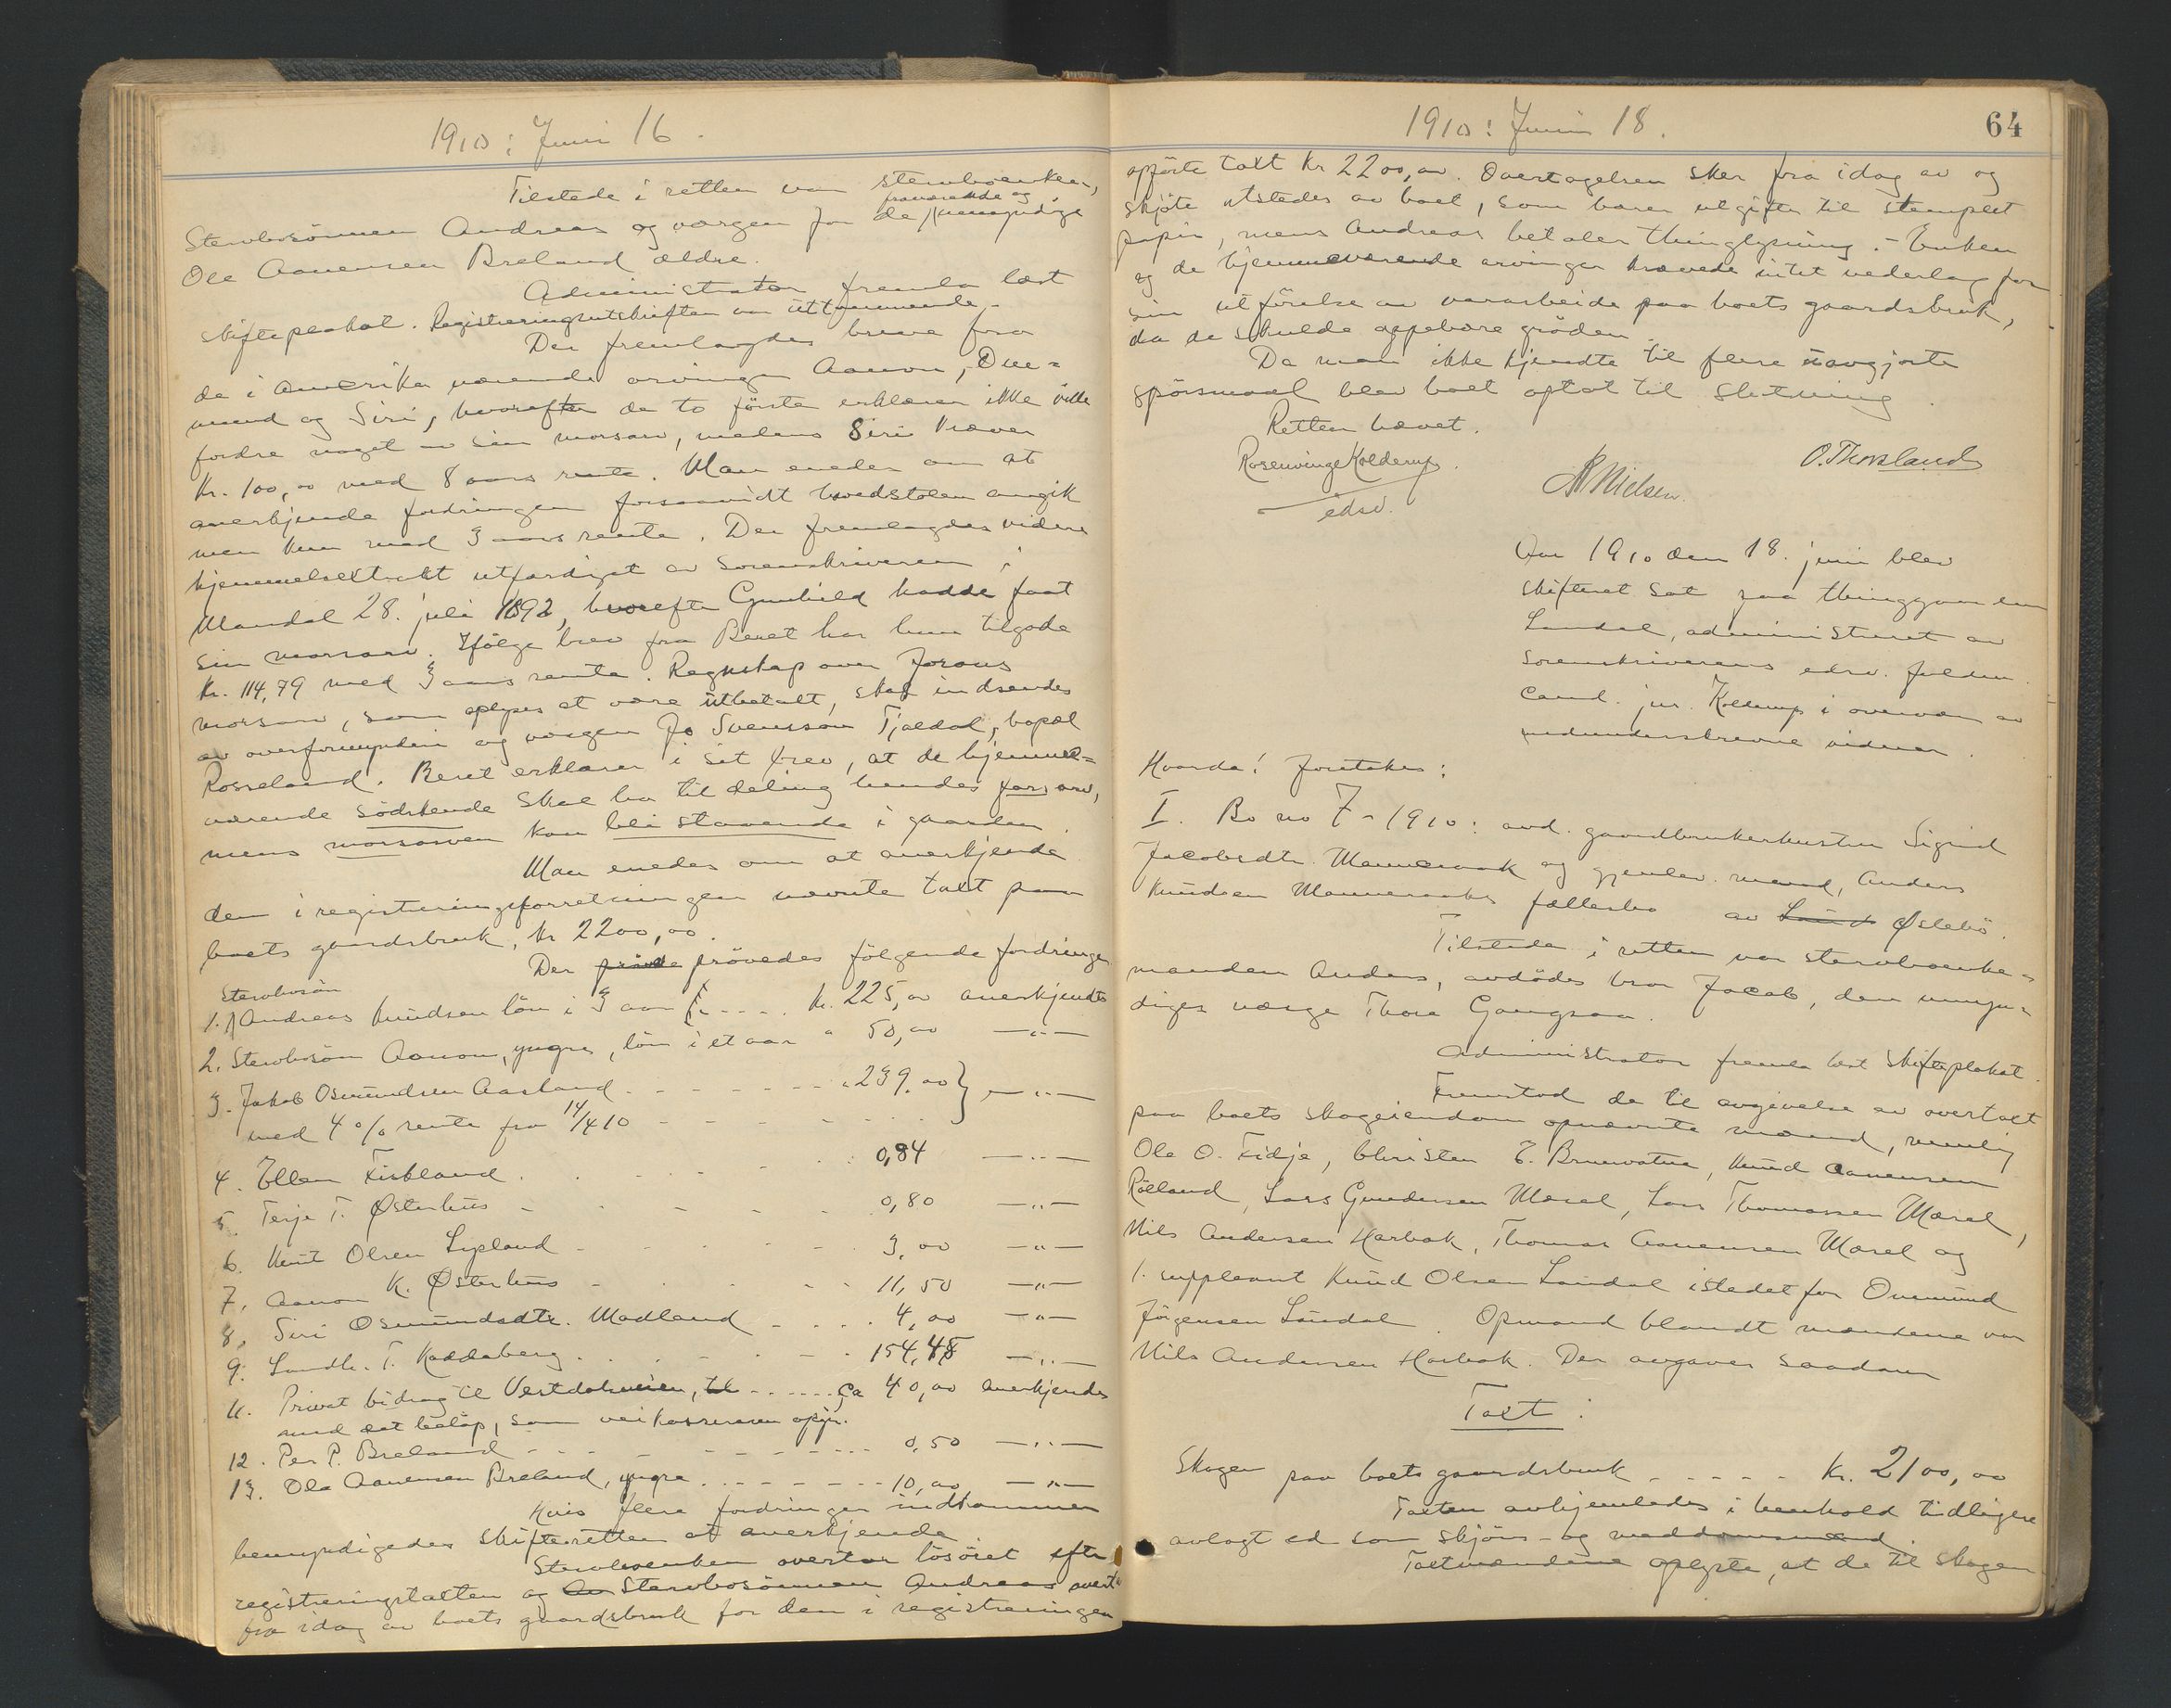 1910: Juni 16.
Tilstede i retten var stervboenken,
fraværende og
Stervbosönnen Andreas og værgen for de umyndige
Ole Aanensen Breland ældre.
Administrator fremla læst
skifteplakat. Registreringsutskriften var uttömmende.
Der fremlagdes breve fra
de i Amerika værende arvinger Aanon, One-
mund og Siri, hvorefter de to förste erklærer ikke ville
fordre noget av sin morsarv, medens Siri kræver
Kr. 100,00 med 8 aars rente. Man enedes om at
anerkjende fordringen forsaavidt hovedstolen angik
men kun med 3 aars rente. Der fremlagdes videre
hjemmelsextrakt utfærdiget av Sorenskriveren i
Mandal 28. juli 1892, hvorefter Gunhild hadde faat
sin morsarv. Ifölge brev fra Beret har hun tilgode
Kr. 114,79 med 3 aars rente. Regnskap over Jorans
morsarv, som oplyses at være utbetalt, skal indsendes
av overformynderi og værgen Jo Svensson Tjaldal, bopæl
Rosseland. Beret erklærer i sit brev, at de hjemme-
værende södskende skal ha til deling hendes farsarv,
mens morsarven kan bli staaende i gaarden.
Man enedes om at anerkjende
den i registreringsforretningen nævnte takt paa
boets gaardsbruk, kr 2200,00.
Der prövde prövedes fölgende fordringer
Stervbosön
1. Andreas Knudsen lön i 3 aar . . . . Kr. 225,00 anerkjendtes
2. Stervbosön Aanon, yngre, lön i et aar " 50,00 —"—
3. Jakob Osmundsen Aasland . . . . 239.00 } —"—
med 4 % rente fra 14/4 10 - - - -
4. Ellen Fiskland . . . . 0,84 —"—
5. Terje T. Østerhus - - - - 0,80 —"—
6. Knut Olsen Lipland - - - 3,00 —"—
7. Aanon K. Østerhus - - - 11,50 —"—
8. Siri Osmundsdtr. Modland - . . . 4,00 —"—
9. Landh. T. Kaddeberg . . . . . 154,48 —"—
11. Privat bidrag til Vestdalsveien, til - . . . . . ca 40,00 anerkjendes
med det belöp, som veikassereren opgir.
12. Per P. Breland - - - - - - 0,50 —"—
13. Ole Aanensen Breland, yngre . - - - - - 10,00 —"—
Hvis flere fordringer indkommer
bemyndigedes skifteretten at anerkjende
Stervboenken overtar lösöret efter
registreringstakten og An Stervbosönnen Andreas overtar
fra idag av boets gaardsbruk for den i registreringen
1910: Juni 18.
64
opförte takt Kr 2200,00. Overtagelsen sker fra idag av og
skjöte utstedes av boet, som bærer utgifter til stemplet
papir, mens Andreas betaler thinglysning. - Enken
og de hjemmeværende arvinger krævede intet vederlag for
sin utförelse av vaararbeide paa boets gaardsbruk,
da de skulde oppebære gröden.
Da man ikke kjendte til flere uavgjorte
spörsmaal blev boet optat til slutning.
Retten hævet.
Rosenvinge Kolderup.
edsv.
Nielsen.
O. Thorsland
Aar 1910 den 18. juni blev
skifteret sat paa thinggaarden
Laudal, administreret av
Sorenskriverens edsv. fuldm.
Cand. jur. Kolderup i overvær av
medunderskrevne vidner.
Hvorda! foretokes:
I. Bo no 7 - 1910: avd. gaardbrukerkusten Sigrid
Jacobsdtr. Mannerack og gjenlev. mand, Anders
Knudsen Manneraaks fællesbo av Laud Øslebö.
Tilstede i retten var stervboenke-
manden Anders, avdödes bror Jacob, den umyn-
diges værge Thore Gangsaa.
Administrator fremla læst skifteplakat.
Fremstod de til avgivelse av overtaxt
paa boets skogeiendom opnævnte mænd, nemlig
Ole O. Fidje, Christen T. Bruvatne, Knud Aanensen
Röiland, Lars Gundersen Mæsel, Lars Thomassen Mæsel,
Nils Andersen Harbak, Thomas Aanensen Mæsel og
1. suppleant Knud Olsen Laudal istedet for Onemund
Jörgensen Laudal. Opmand blandt mændene var
Nils Andersen Harbak. Der avgaves saadan
Taxt:
Skogen paa boets gaardsbruk - - - - - Kr. 2100,00
Taxten avhjemledes i henhold tidligere
avlagt ed som skjöns- og meddomsmænd.
Taxtmændene oplyste, at de til skogen